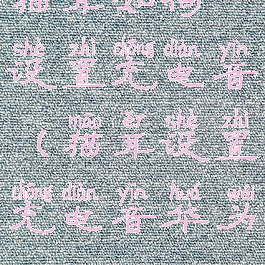 shè zhì chōng diàn yīn
设置充电音
māo ěr shè zhì
（猫耳设置
chōng diàn yīn huá wèi
充电音华为